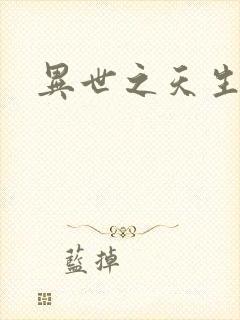 異世之天生
藍掉